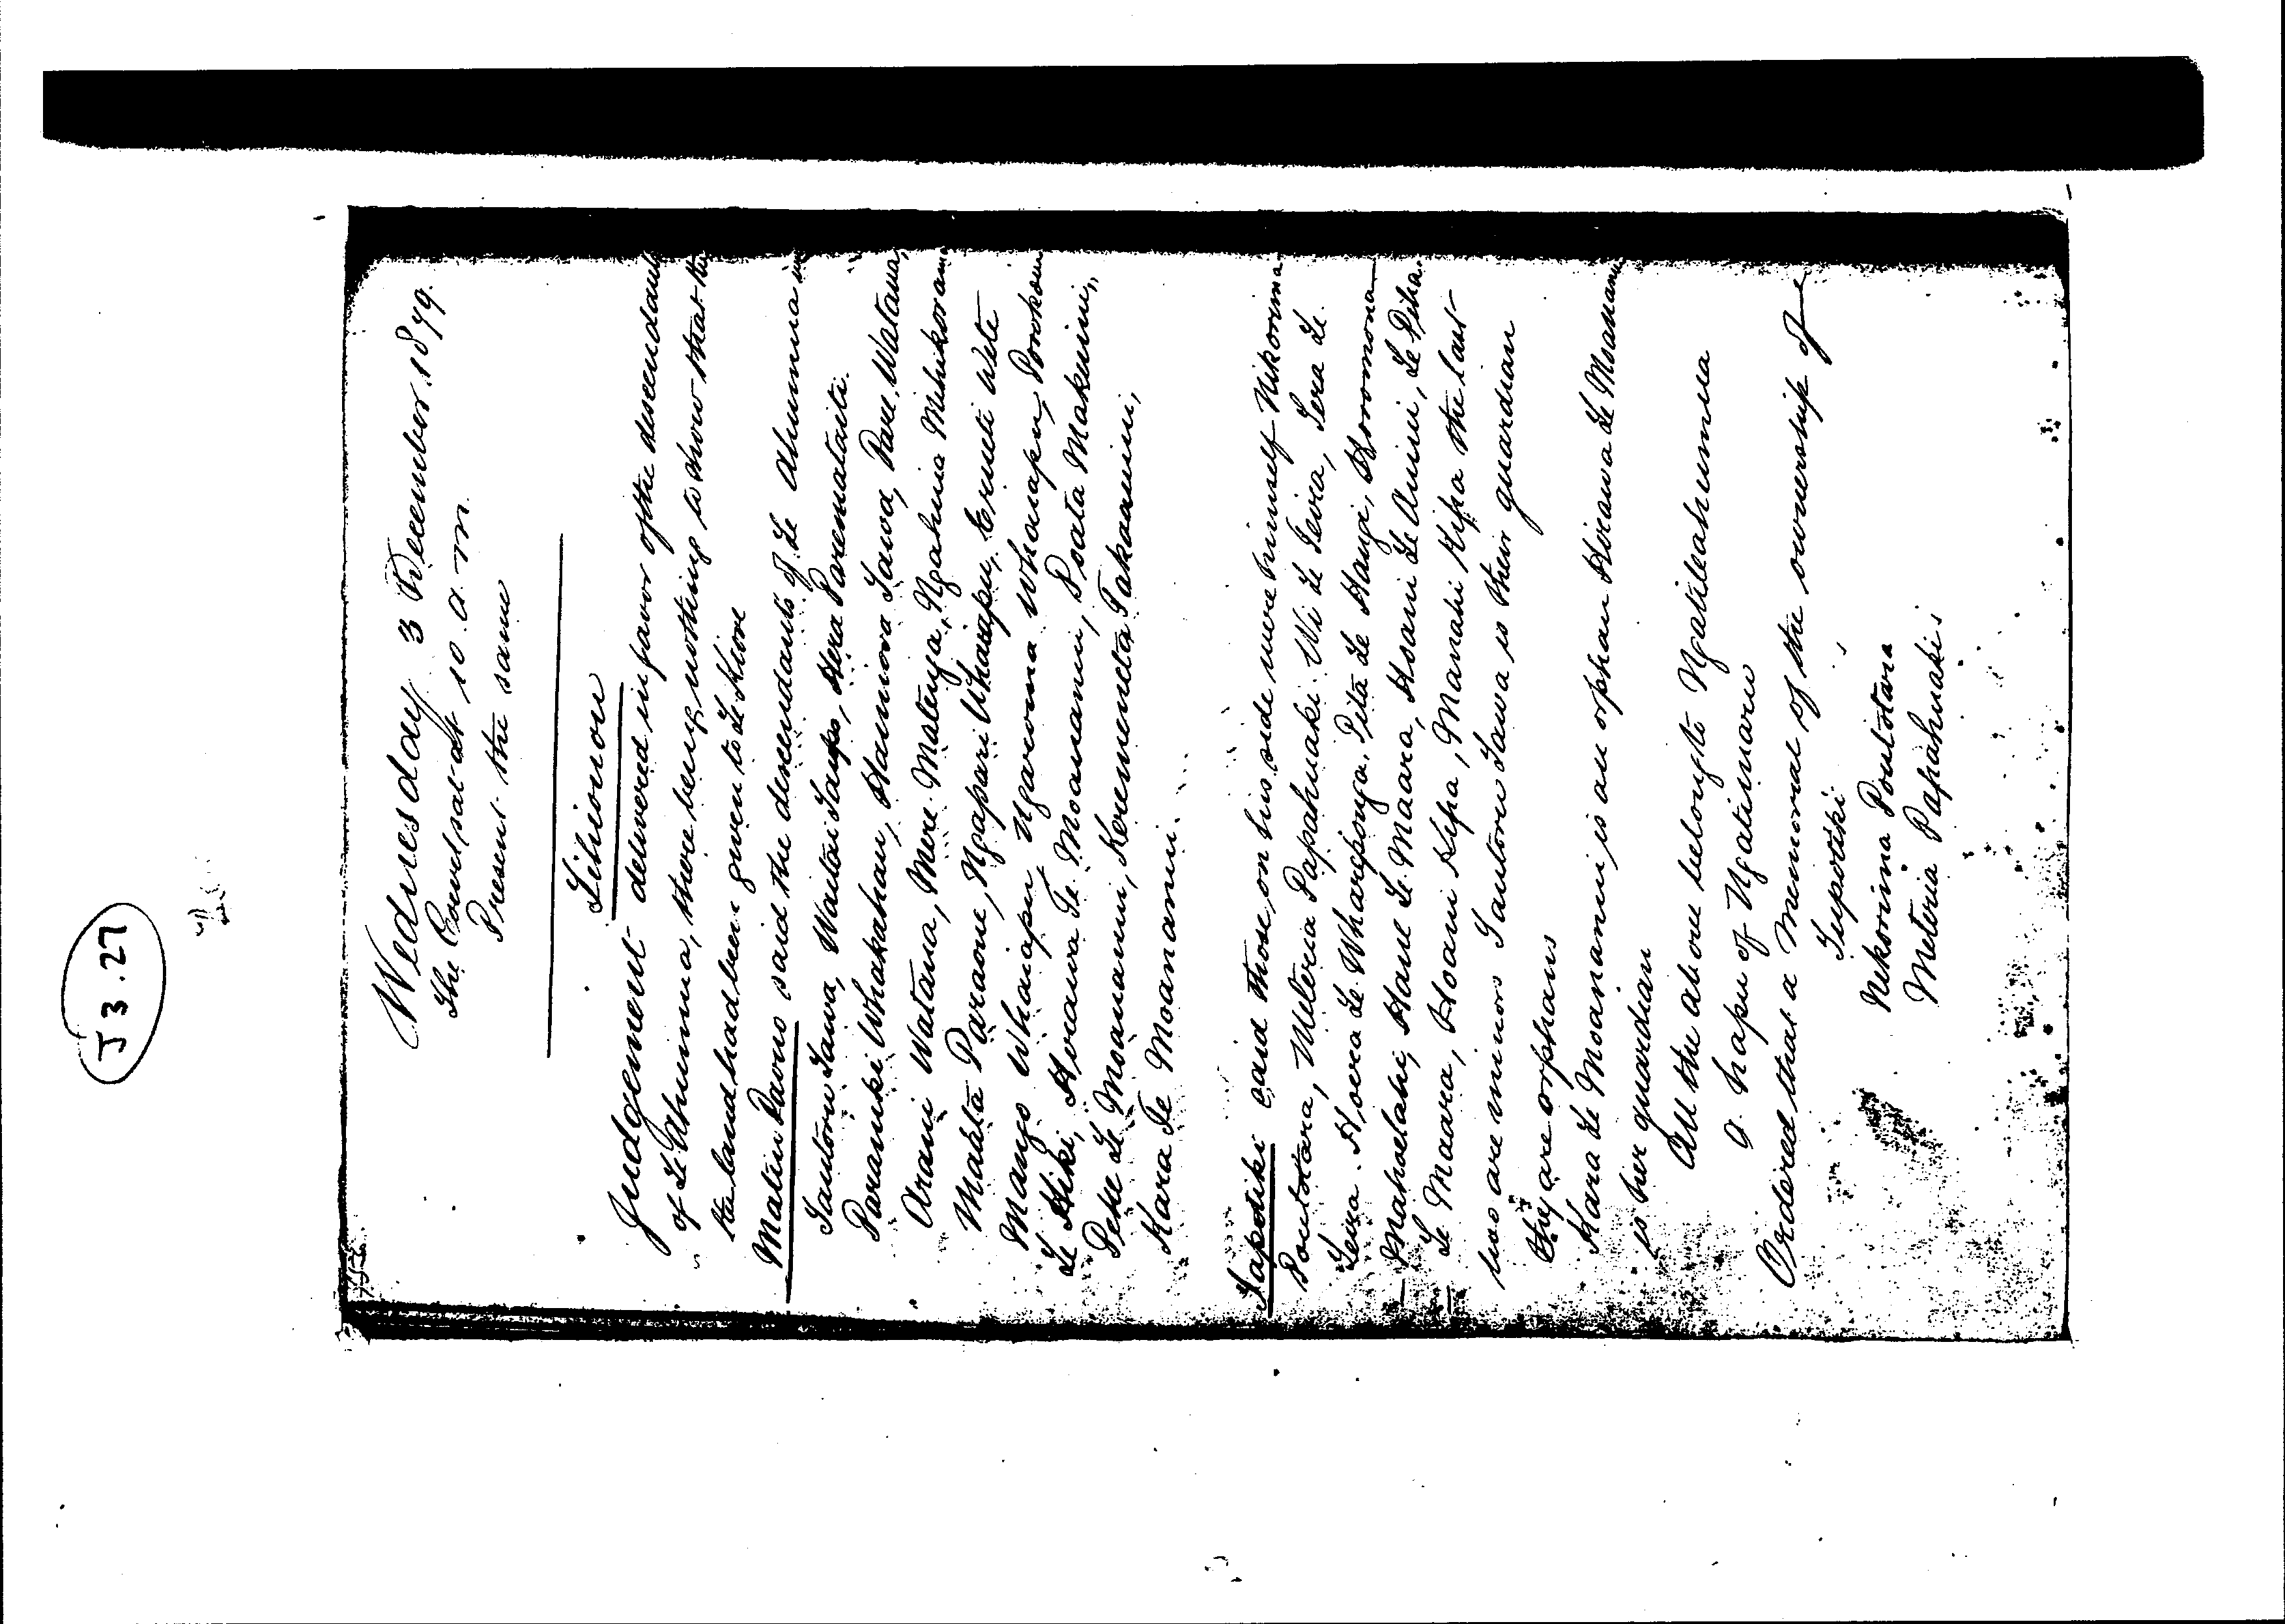 J 3.27
Wednesday 3 December 1879.
The Court sat at 10 a.m.
Present the same
Judgement delivered in favor of the descendants
of Te Ahumua, there being nothing to show that the
the land had been given to Te Kiore
Matiu Pavou said the descendants of Te Ahumua
Tautoru Tawa, Waitai Taupo, Hera Paremataiti.
Paranihi Whakahau, Hamiora Tawa, Pare Watana,
Arani Watana, Mere Matenga, Ngahuia Mihikorama
Maata Paraone, Ngapari Whanapu, Erueti Wete
Mango Whanapu Ngawima Whanapu,
Te Hiki, Hirawa Te Moananui, Roata Makuini,
Pehi Te Moananui, Keremeneta Takaanini,
Kara Te Moananui.
said those on his side were himself Nikorima
Poutotara, Meteria Papahuaki Wi Te Teira, Tera Te
Teira. Hoera Te Whareponga, Pita Te Hangi, Horomona
Mahoetahi, Hare Te Maara, Hoani Te Anini, Te Piha
Te Maara, Hoani Kipa, Manahi Kipa the last
two are minors Tautoru Tawa is their guardian
they are orphans
Kara Te Moananui is an orphan Hirawa Te Moananui
is her guardian
All the above belong to Ngatiteahumua
a hapu of Ngatimaru
Ordered that a Memorial of the ownership of
Nikorima Poutotara
Meteria Papahuaki